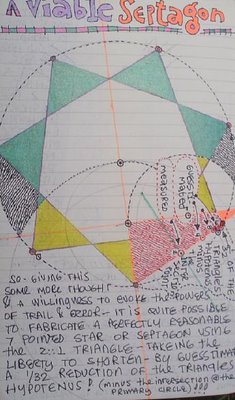 A Viable Septagon
GUESSTI
MATED
MEASURED
1/32 OF THE
TRIANGLES
HYPOTENUS
SO - GIVING THIS
SOME MORE THOUGHT
& A WILLINGNESS TO EVOKE THE POWERS
OF TRAIL & ERROR - IT IS QUITE POSSIBLE
TO FABRICATE A PERFECTLY REASONABLE
7 POINTED STAR OR SEPTAGON USING
THE 2:::1 TRIANGLE - TAKING THE
LIBERTY TO SHORTEN BY GUESSTIMATE
A 1/32 REDUCTION OF THE TRIANGLES
HYPOTENUS! (MINUS THE INTERSECTION @ THE
PRIMARY CIRCLE)!!!